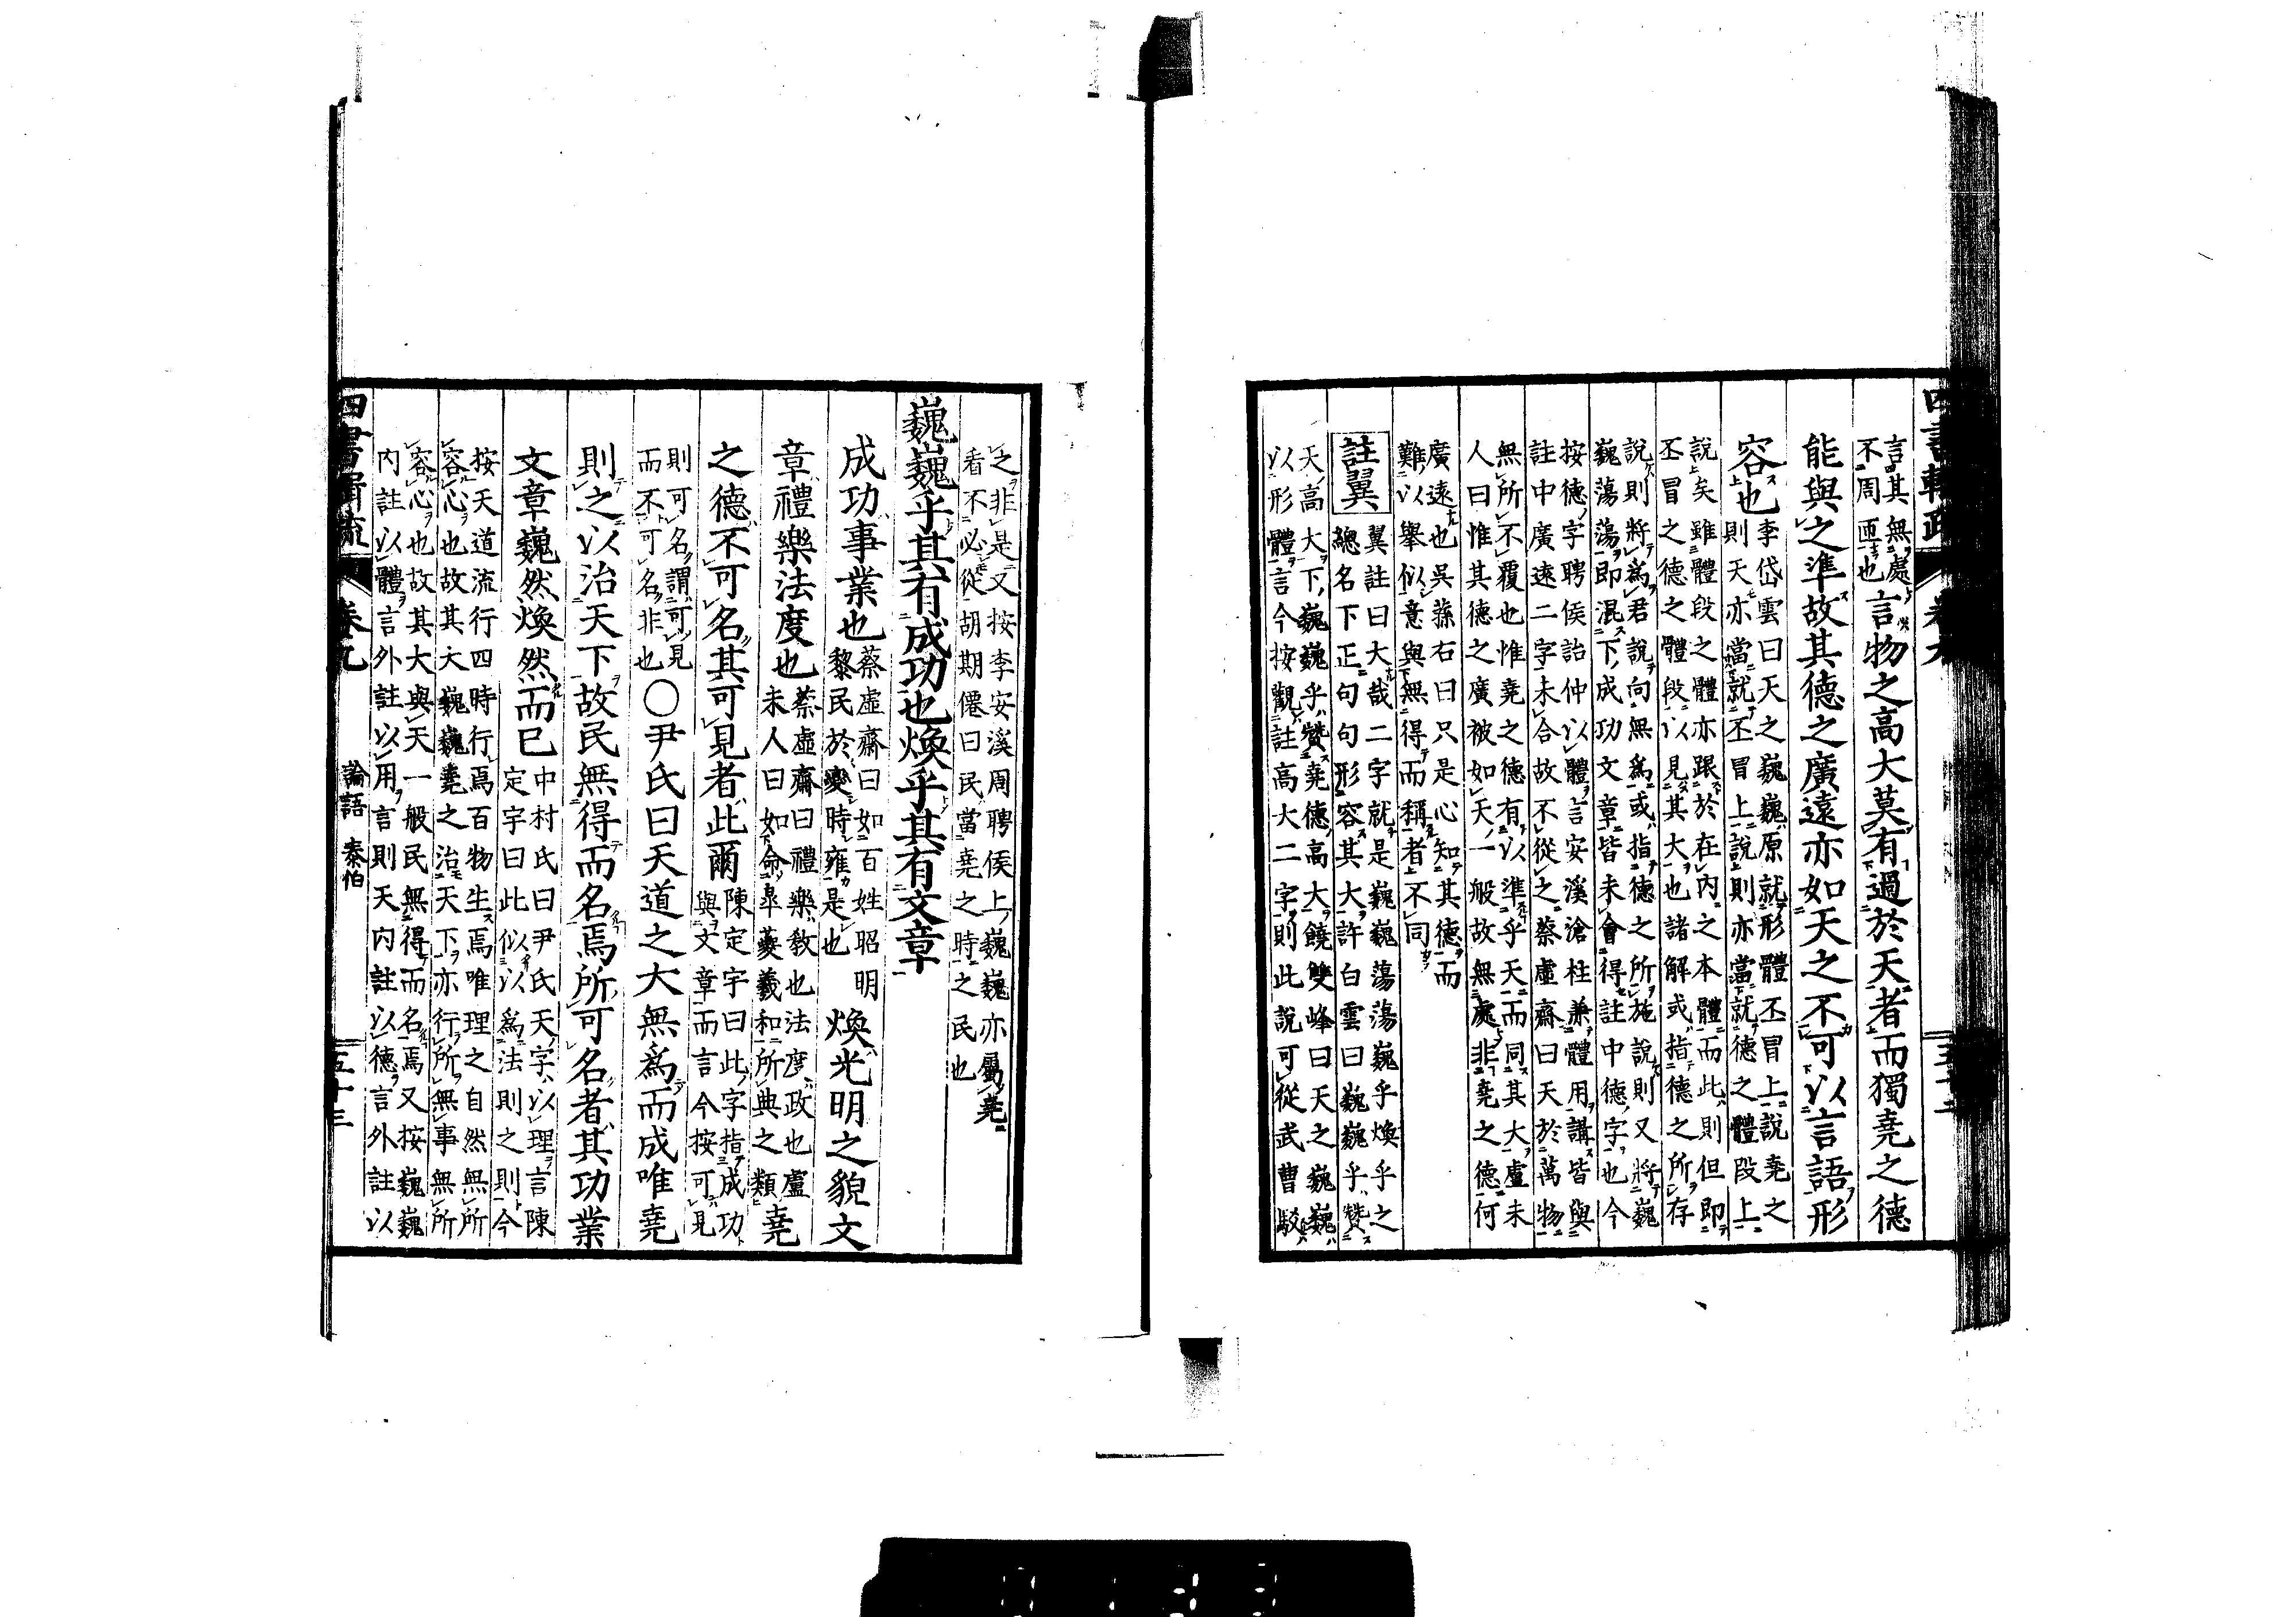 言其無處
不周匝也
言物之高大莫有過於天者而獨堯之德
能與之準故其德之廣遠亦如天之不可以言語形
容也
李岱雲曰天之巍巍原就形體丕冒上說堯之
則天亦當就丕冒上說則亦當就德之體段上
說矣雖體段之體亦跟於在內之本體而此則但即
丕冒之德之體段以見其大也諸解或指德之所存
說則將爲君說向無爲或指德之所施說則又將巍
巍蕩蕩即混下成功文章皆未會得註中德字也今
按德字聘侯詒仲以體言安溪滄柱兼體用講皆與
註中廣遠二字未合故不從之蔡虛齋曰天於萬物
無所不覆也惟堯之德有以準乎天而同其大盧未
人曰惟其德之廣被如天一般故無處非堯之德何
廣遠也吳蓀右曰只是心知其德而
難以舉似意與無得而稱者不同
註翼
翼註曰大哉二字就是巍巍蕩蕩巍乎煥乎之
總名下正句句形容其大許白雲曰巍巍乎贊
天高大下巍巍乎贊堯德高大饒雙峰曰天之巍巍
以形體言今按觀註高大二字則此說可從武曹駁
之非是又按李安溪周聘侯上巍巍亦屬堯
看不必從胡期僊曰民當堯之時之民也
巍巍乎其有成功也煥乎其有文章
成功事業也
蔡虛齋曰如百姓昭明
黎民於變時雍是也
煥光明之貌文
章禮樂法度也
蔡虛齋曰禮樂教也法度政也盧
未人曰如命皐夔羲和所典之類
堯
之德不可名其可見者此爾
陳定宇曰此字指成功
與文章而言今按可見
則可名謂可見
而不可名非也
○尹氏曰天道之大無爲而成唯堯
則之以治天下故民無得而名焉所可名者其功業
文章巍然煥然而已
中村氏曰尹氏天字以理言陳
定宇曰此似以爲法則之則今
按天道流行四時行焉百物生焉唯理之自然無所
容心也故其大巍巍堯之治天下亦行所無事無所
容心也故其大與天一般民無得而名焉又按巍巍
內註以體言外註以用言則天內註以德言外註以
論語 泰伯